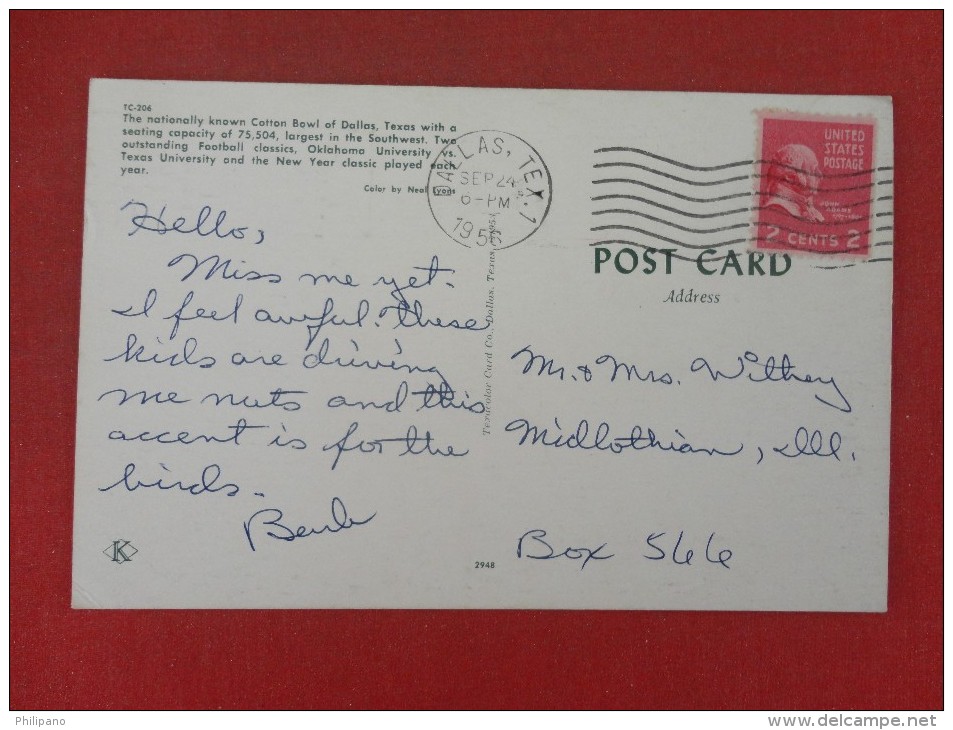 TC-206
The nationally known Cotton Bowl of Dallas, Texas with a
seating capacity of 75,504, largest in the Southwest. Two
outstanding Football classics, Oklahoma University vs.
Texas University and the New Year classic played each
year.
Color by Neal Lyons
Hello,
Miss me yet.
I feel awful. These
kids are driving
me nuts and this
accent is for the
birds.
Barb
K
2948
Texacolor Card Co., Dallas, Texas
DALLAS, TEX. 1
SEP 24
6-PM
195
UNITED
STATES
POSTAGE
JOHN
ADAMS
2 CENTS 2
POST CARD
Address
Mr. & Mrs. Withey
Midlothian, Ill.
Box 566
Philipano
www.delcampe.net